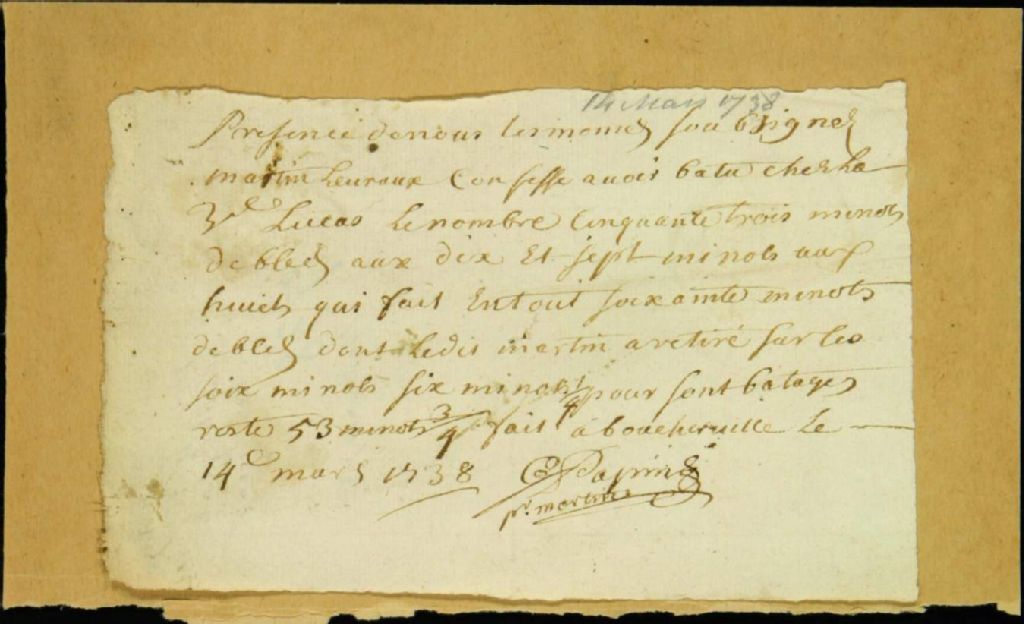 14 Mars 1738
Presence de nous les momes soubsignes
martin heuraux Confesse avoir batu chez La
Ve Lucas Le nombre Cinquante trois minots
de bled aux dix Et sept minots aux
huict qui fait En tout soixainte minots
de bled dont Ledit martin a retiré sur les
soix minots six minots 1/4 pour sont batages
reste 53 minots 3/4 fait a boucherville Le
14e mars 1738 Papin
pr. martin